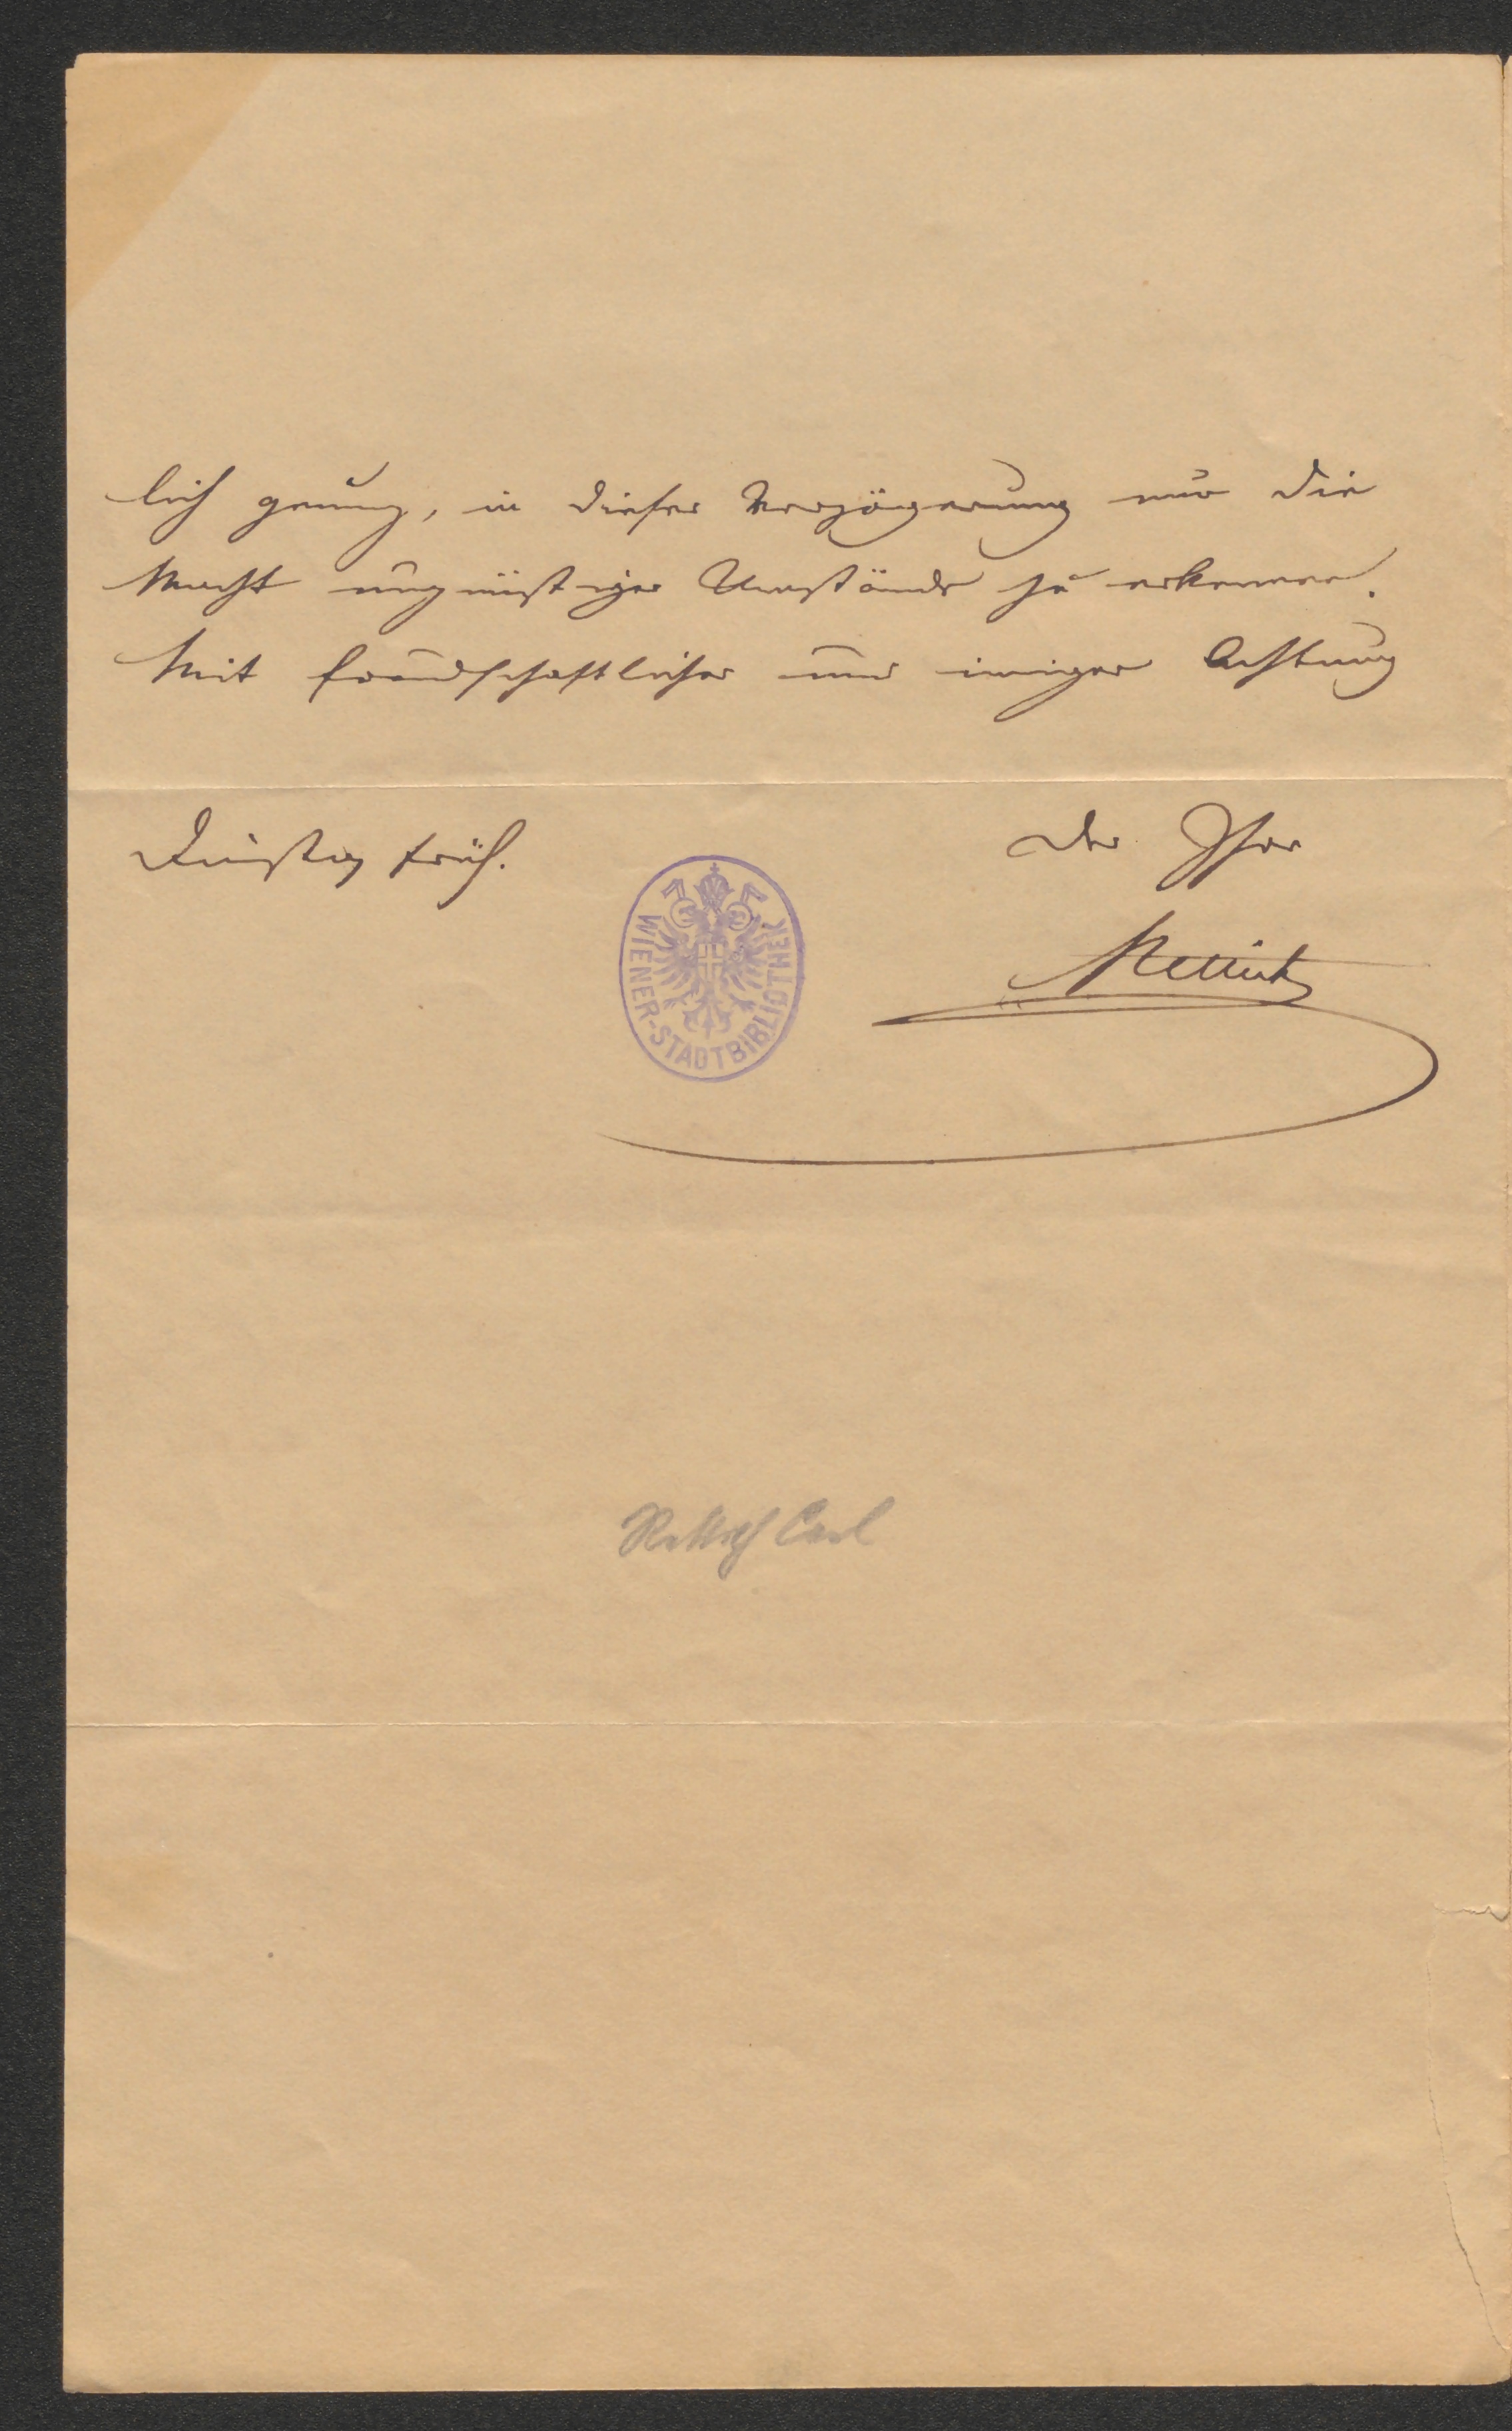 lich genug, in dieser Verzögerung nur die
Macht ungünstiger Umstände zu erkennen.
Mit freundschaftlicher und inniger Achtung
Dienstag früh.
Der Ihre
Rettich
WIENER-STADTBIBLIOTHEK
Rettich Carl